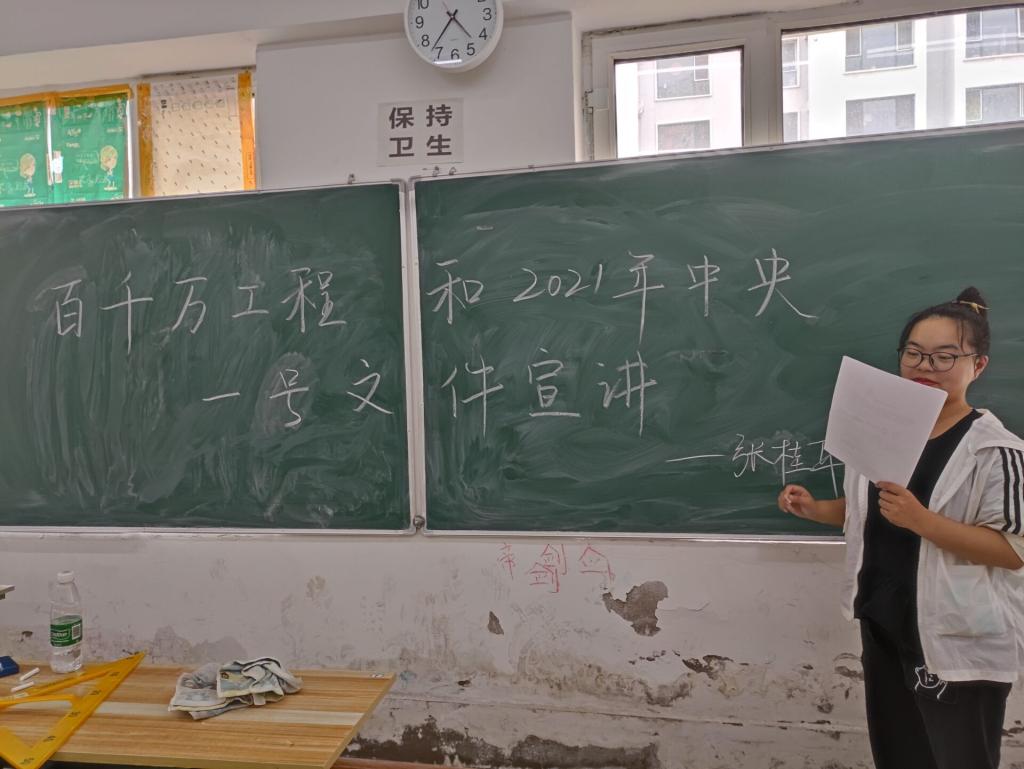 10
9
8
7
6
5
4
3
2
保持
卫生
百千万工程和2021年中央
一号文件宣讲
—张桂
帝剑
剑